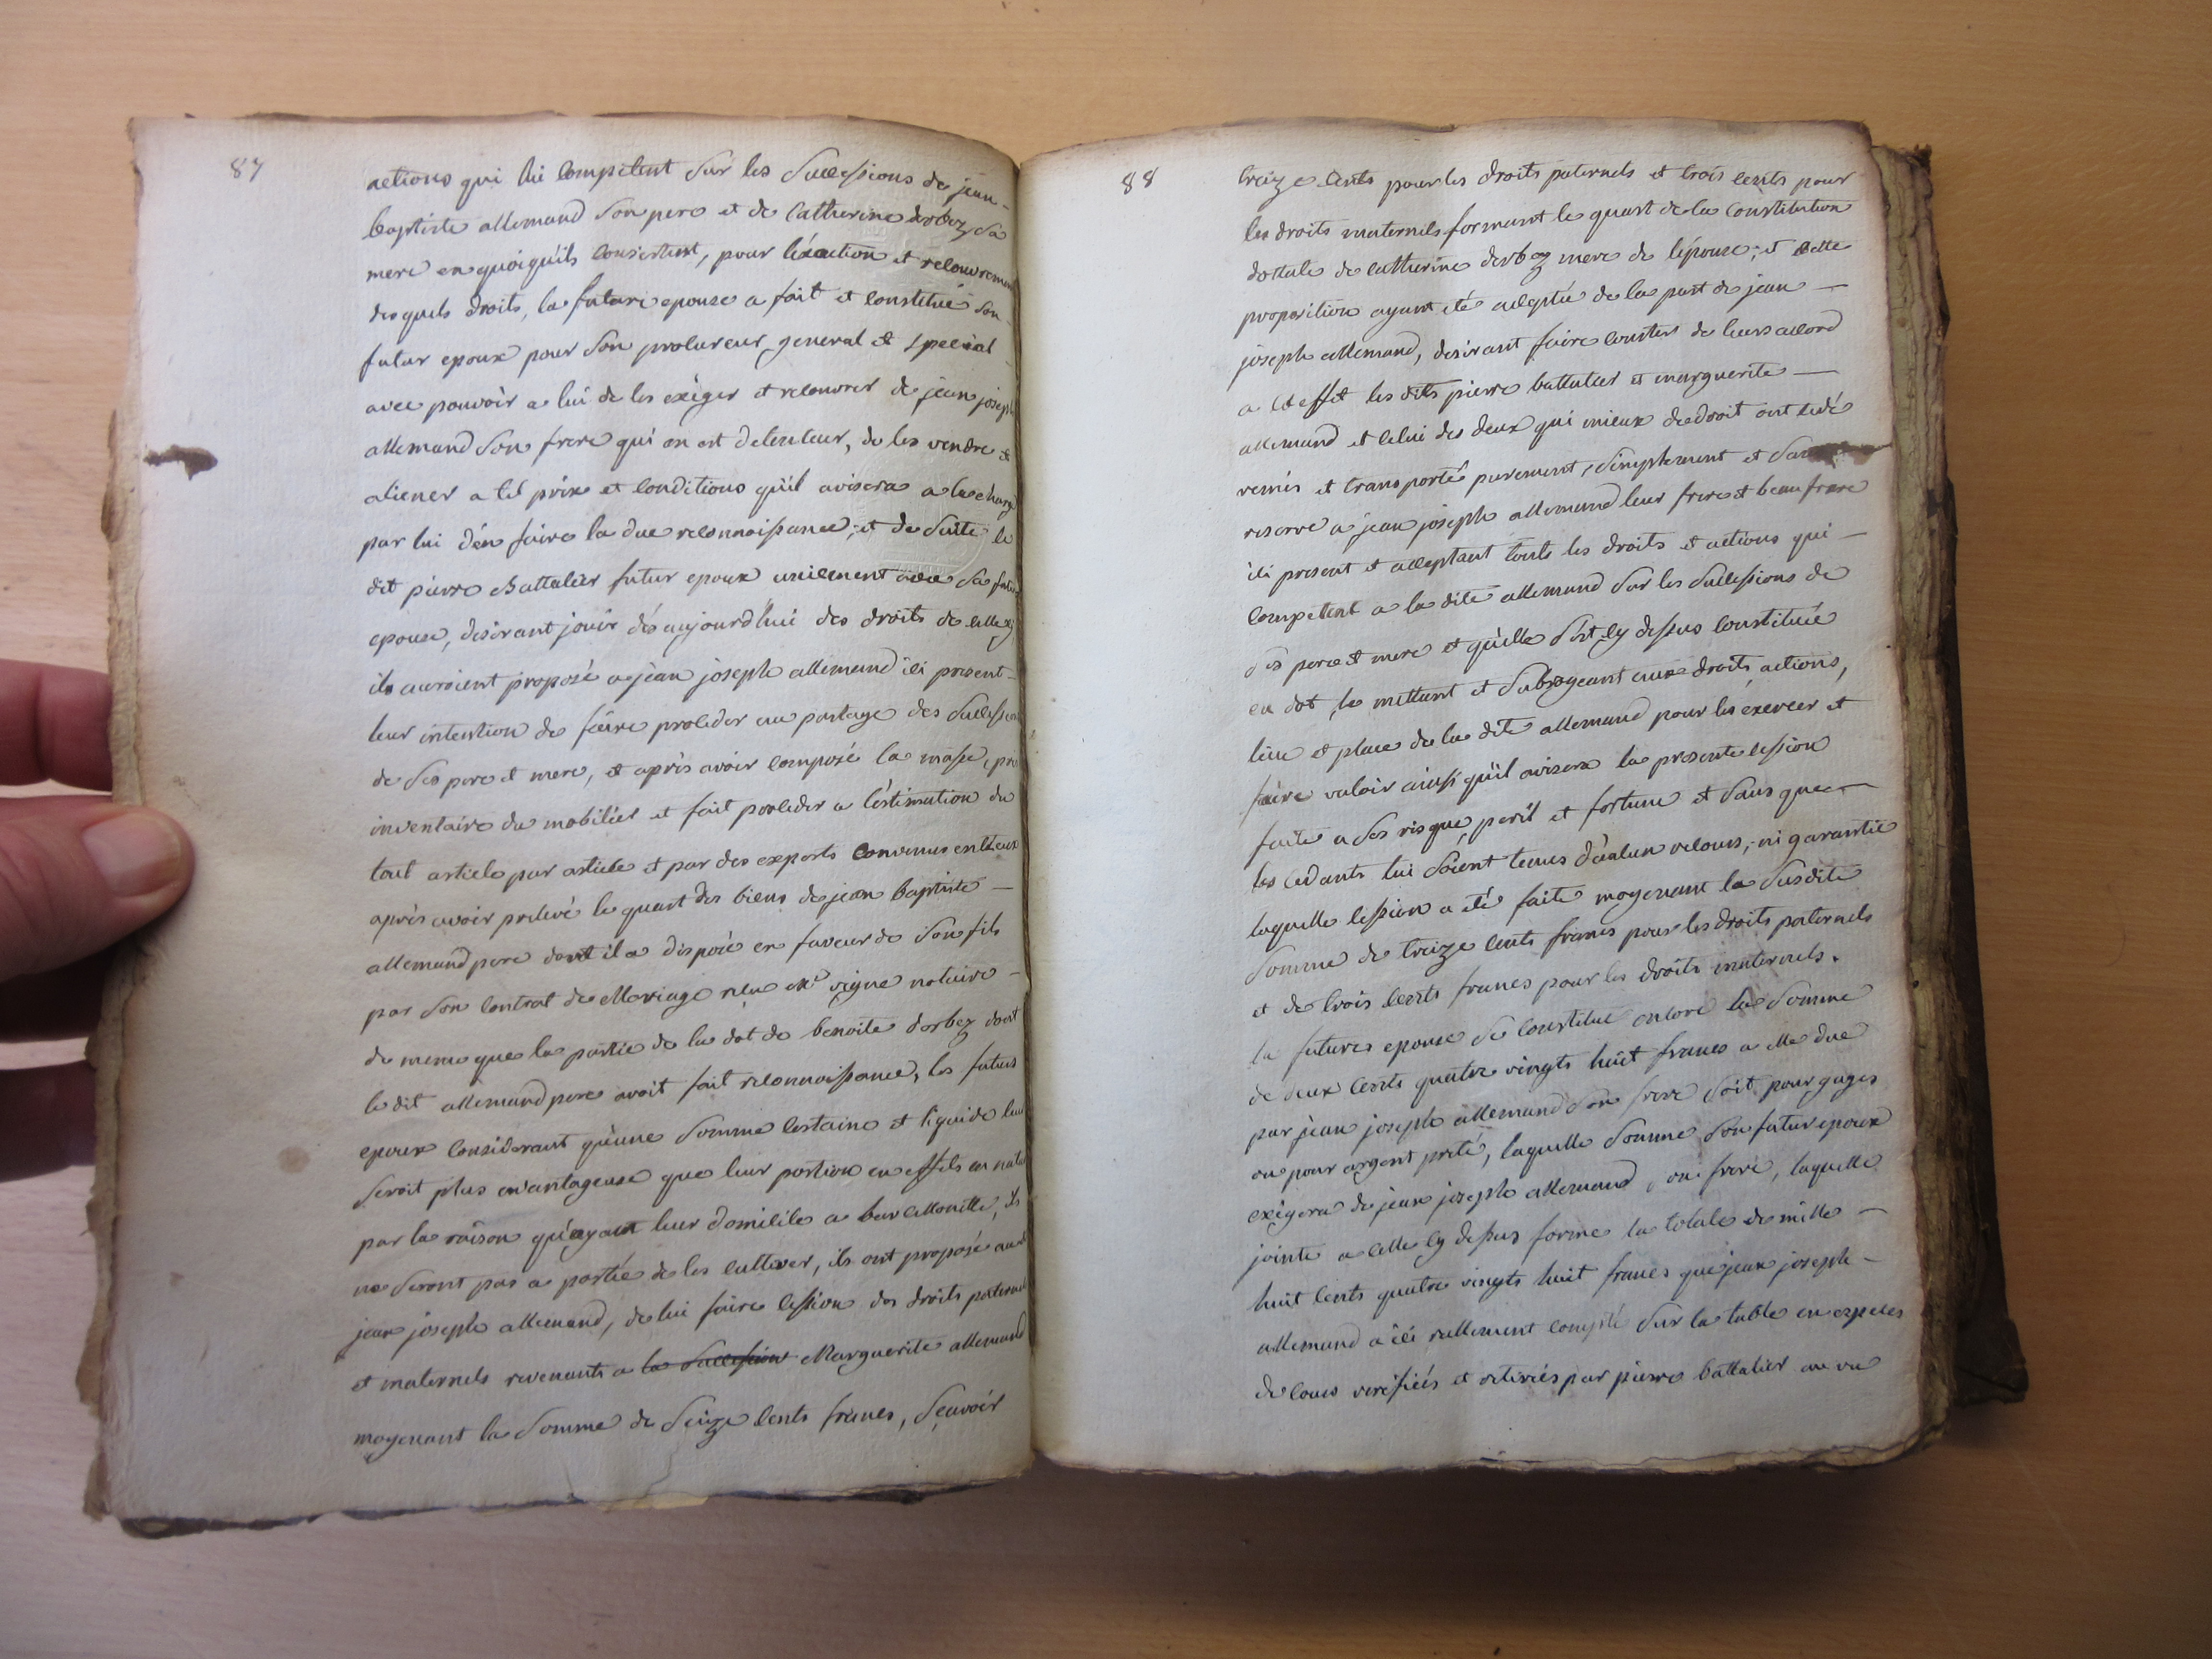 87
actions qui lui competent sur les successions de jean-
baptiste allemand son pere et de Catherine derbez sa
mere en quoiqu'ils consistent, pour l'éxécution et recouvrement
desquels droits, la future epouse a fait et constitué son
futur epoux pour son procureur general et special
avec pouvoir a lui de les exiger et recouvrer de jean joseph
allemand son frere qui en est detenteur, de les vendre et
aliener a tel prix et conditions qu'il avisera a la charge
par lui d'en faire la due reconnoissance; et de suite le
dit pierre Battalier futur epoux uniement avec sa future
epouse, desirant jouir dés aujourd'hui des droits de celle cy
ils auroient proposé a jean joseph allemand ici present
leur intention de faire proceder au partage des successions
de ses pere et mere, et après avoir composé la masse, pris
inventaire du mobilier et fait proceder a l'éstimation du
tout article par article et par des experts convenus entr'eux
après avoir prelevé le quart des biens de jean baptiste —
allemand pere dont il a disposé en faveur de son fils
par son contrat de Mariage rieu Me vigne notaire —
de meme que la partie de la dot de benoite derbez dont
le dit allemand pere avoit fait reconnoissance, les futurs
epoux considerant qu'une somme certaine et liquide leur
seroit plus avantageuse que leur portion en effets en nature
par la raison qu'ayant leur domicile a barcellonette, ils
ne seront pas a portée de les cultiver, ils ont proposé au dit
jean joseph allemand, de lui faire cession des droits paternels
et maternels revenants a la succession Marguerite allemand
moyenant la somme de seize cents francs, sçavoir
88
treize cents pour les droits paternels et trois cents pour
les droits maternels formant le quart de la constitution
dottale de catherine derbez mere de l'épouse; et cette
proposition ayant été acceptée de la part de jean —
joseph allemand, desirant faire conster de leurs accord
a cet effet les dits pierre battalier et marguerite —
allemand et celui des deux qui mieux de droit ont cedé
remis et transporté purement, simplement et sans
reserve a jean joseph allemand leur frere et beau frere
ici present et acceptant touts les droits et actions qui —
competent a la dite allemand sur les successions de
ses pere et mere et qu'elle s'est cy dessus constituée
en dot, le mettant et subrogeant aux droits, actions,
lieu et place de la dite allemand pour les éxercer et
faire valoir ainsi qu'il avisera la presente cession
faite a ses risque, peril et fortune et sans que —
les cedants lui soient tenus d'aucun recours, ni garantie
laquelle cession a été faite moyenant la susdite
somme de treize cents francs pour les droits paternels
et de trois cents francs pour les droits maternels.
la future epouse se constitue encore la somme
de deux cents quatre vingts huit francs a elle due
par jean joseph allemand son frere soit pour gages
ou pour argent preté, laquelle somme son futur epoux
exigera de jean joseph allemand son frere, laquelle
jointe a celle cy dessus forme la totale de mille —
huit cents quatre vingts huit francs que jean joseph —
allemand a ici réellement compté sur la table en especes
de cours verifiées et retirées par pierre battalier au vu